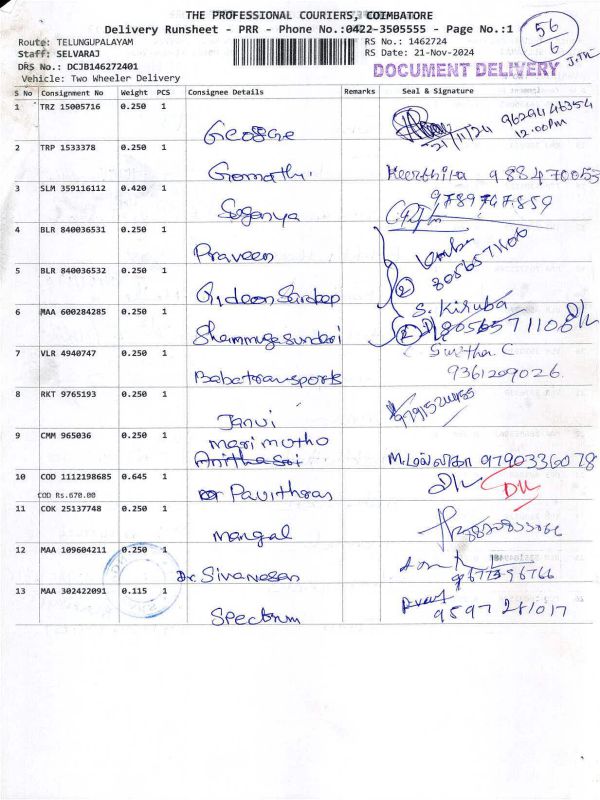 THE PROFESSIONAL COURIERS, COIMBATORE
Delivery Runsheet - PRR - Phone No.:0422-3505555 - Page No.:1
56
6
Route: TELUNGUPALAYAM
RS No.: 1462724
Staff: SELVARAJ
RS Date: 21-Nov-2024
DRS No.: DCJB146272401
DOCUMENT DELIVERY
Vehicle: Two Wheeler Delivery
S No Consignment No Weight PCS Consignee Details Remarks Seal & Signature
1 TRZ 15005716 0.250 1
George
21/11/24
9629446354
12.00pm
2 TRP 1533378 0.250 1
Gomathi
Keerthika
3 SLM 359116112 0.420 1
Suganya
9789747859
4 BLR 840036531 0.250 1
Praveen
8056571106
5 BLR 840036532 0.250 1
Gideon Sardeep
2
S. Kiruba
6 MAA 600284285 0.250 1
Shammugasundari
2
8056571106
7 VLR 4940747 0.250 1
Babatransports
Suvitha. C
9361209026.
8 RKT 9765193 0.250 1
Janvi
9791521455
9 CMM 965036 0.250 1
Marimutho
M. மல்லிகா 9790336078
10 COD 1112198685 0.645 1
COD Rs.670.00
Pavithran
11 COK 25137748 0.250 1
Mangal
12 MAA 109604211 0.250 1
Dr. Sivanesan
9677396766
13 MAA 302422091 0.115 1
Spectrum
9597281017